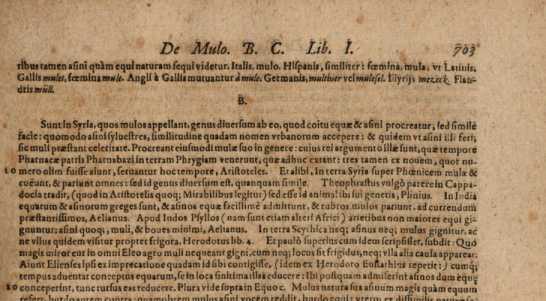 De Mulo. B. C. Lib. I. 703
ribus tamen asini quàm equi naturam sequi videtur. Italis. mulo. Hispanis, similiter: fœmina, mula, vt Latinis,
Gallis mulet, fœmina mule. Angli à Gallis mutuantur a mule. Germanis, multhier vel mulesel. Illyrijs mezeck. Flan-
dris mūll.
B.
Sunt in Syria, quos mulos appellant, genus diuersum ab eo, quod coitu equæ & asini procreatur, sed simile
facie: quomodo asini syluestres, similitudine quadam nomen vrbanorum accepere: & quidem vt asini illi feri,
sic muli præstant celeritate. Procreant eiusmodi mulæ suo in genere: cuius rei argumento illæ sunt, quæ tempore
Pharnacæ patris Pharnabazi in terram Phrygiam venerunt, quæ adhuc extant: tres tamen ex nouem, quot nu-
10 mero olim fuisse aiunt, seruantur hoc tempore, Aristoteles. Et alibi, In terra Syria super Phœnicem mulæ &
coëunt, & pariunt omnes: sed id genus diuersum est, quanquam simile. Theophrastus vulgò parere in Cappa-
docia tradit, (quod in Aristotelis quoq; Mirabilibus legitur) sed esse id animal ibi sui generis, Plinius. In India
equarum & asinorum greges sunt, & asinos equæ facillimè admittunt, & rubros mulos pariunt, ad currendum
præstantissimos, Aelianus. Apud Indos Psyllos (nam sunt etiam alteri Africi) arietibus non maiores equi gi-
gnuntur: asini quoq;, muli, & boues minimi, Aelianus. In terra Scythica neq; asinus neq; mulus gignitur, ac
ne vllus quidem visitur propter frigora. Herodotus lib. 4. Et paulò superius cum idem scripsisset, subdit: Quo
magis miror cur in omni Eleo agro muli nequeant gigni, cum neq; locus sit frigidus, neq; vlla alia causa appareat.
Aiunt Elienses ipsi ex imprecatione quadam id sibi contigisse, (idem ex Herodoto Eustathius repetit:) cumq;
tempus aduentat conceptus equarum, se in loca finitima illas educere: Ibi postquam admiserint asinos dum equę
20 conceperint, tunc rursus eas reducere. Plura vide supra in Equo C. Mulus natura sua asinum magis quàm equum